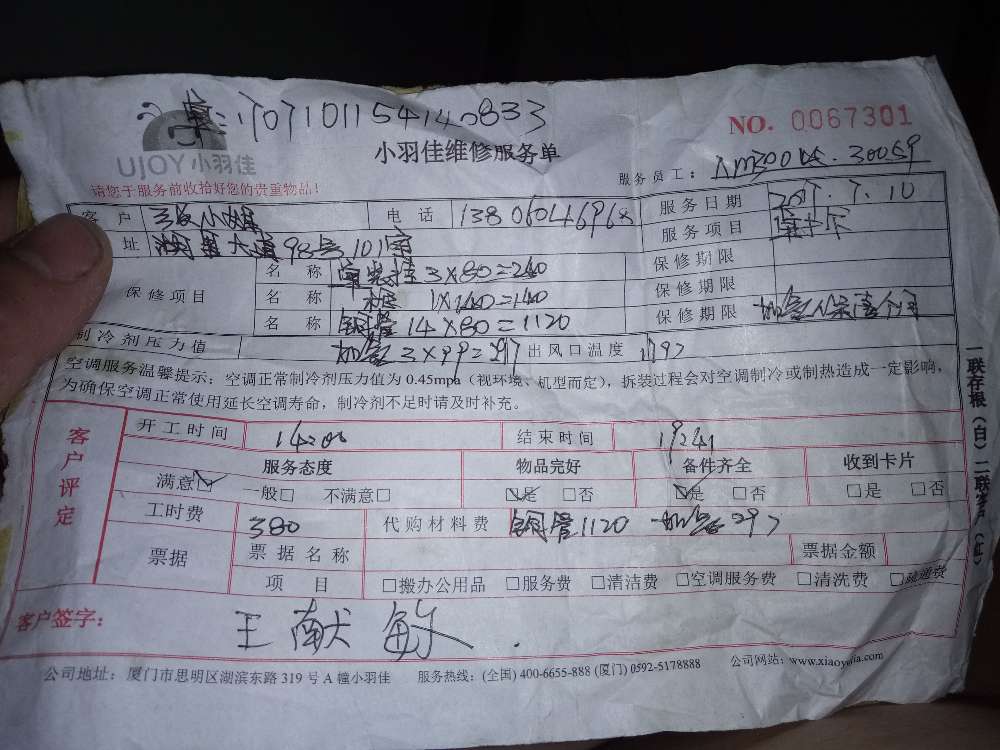 1707101154140833
NO. 0067301
UJOY小羽佳
小羽佳维修服务单
服务员工：
请您于服务前收拾好您的贵重物品！
客户 小姐 电话 服务日期 2017.7.10
址 98号101室 服务项目
保修项目 名称 单装挂3×80=240 保修期限
名称 柜 1×140=140 保修期限
名称 铜管14×80=1120 保修期限
制冷剂压力值 加氨3×99=297 出风口温度 1797
空调服务温馨提示：空调正常制冷剂压力值为0.45mpa（视环境、机型而定），拆装过程会对空调制冷或制热造成一定影响，
为确保空调正常使用延长空调寿命，制冷剂不足时请及时补充。
客户评定
开工时间 14:00 结束时间 19:41
服务态度 物品完好 备件齐全 收到卡片
满意□ 一般□ 不满意□ □是 □否 □是 □否 □是 □否
工时费 380 代购材料费 铜管1120 加氨297
票据 票据名称 票据金额
项目 □搬办公用品 □服务费 □清洁费 □空调服务费 □清洗费 □疏通费
客户签字： 王献敏
公司地址：厦门市思明区湖滨东路319号A幢小羽佳 服务热线：(全国) 400-6655-888 (厦门) 0592-5178888 公司网站：
一联存根（白）二联客户（红）